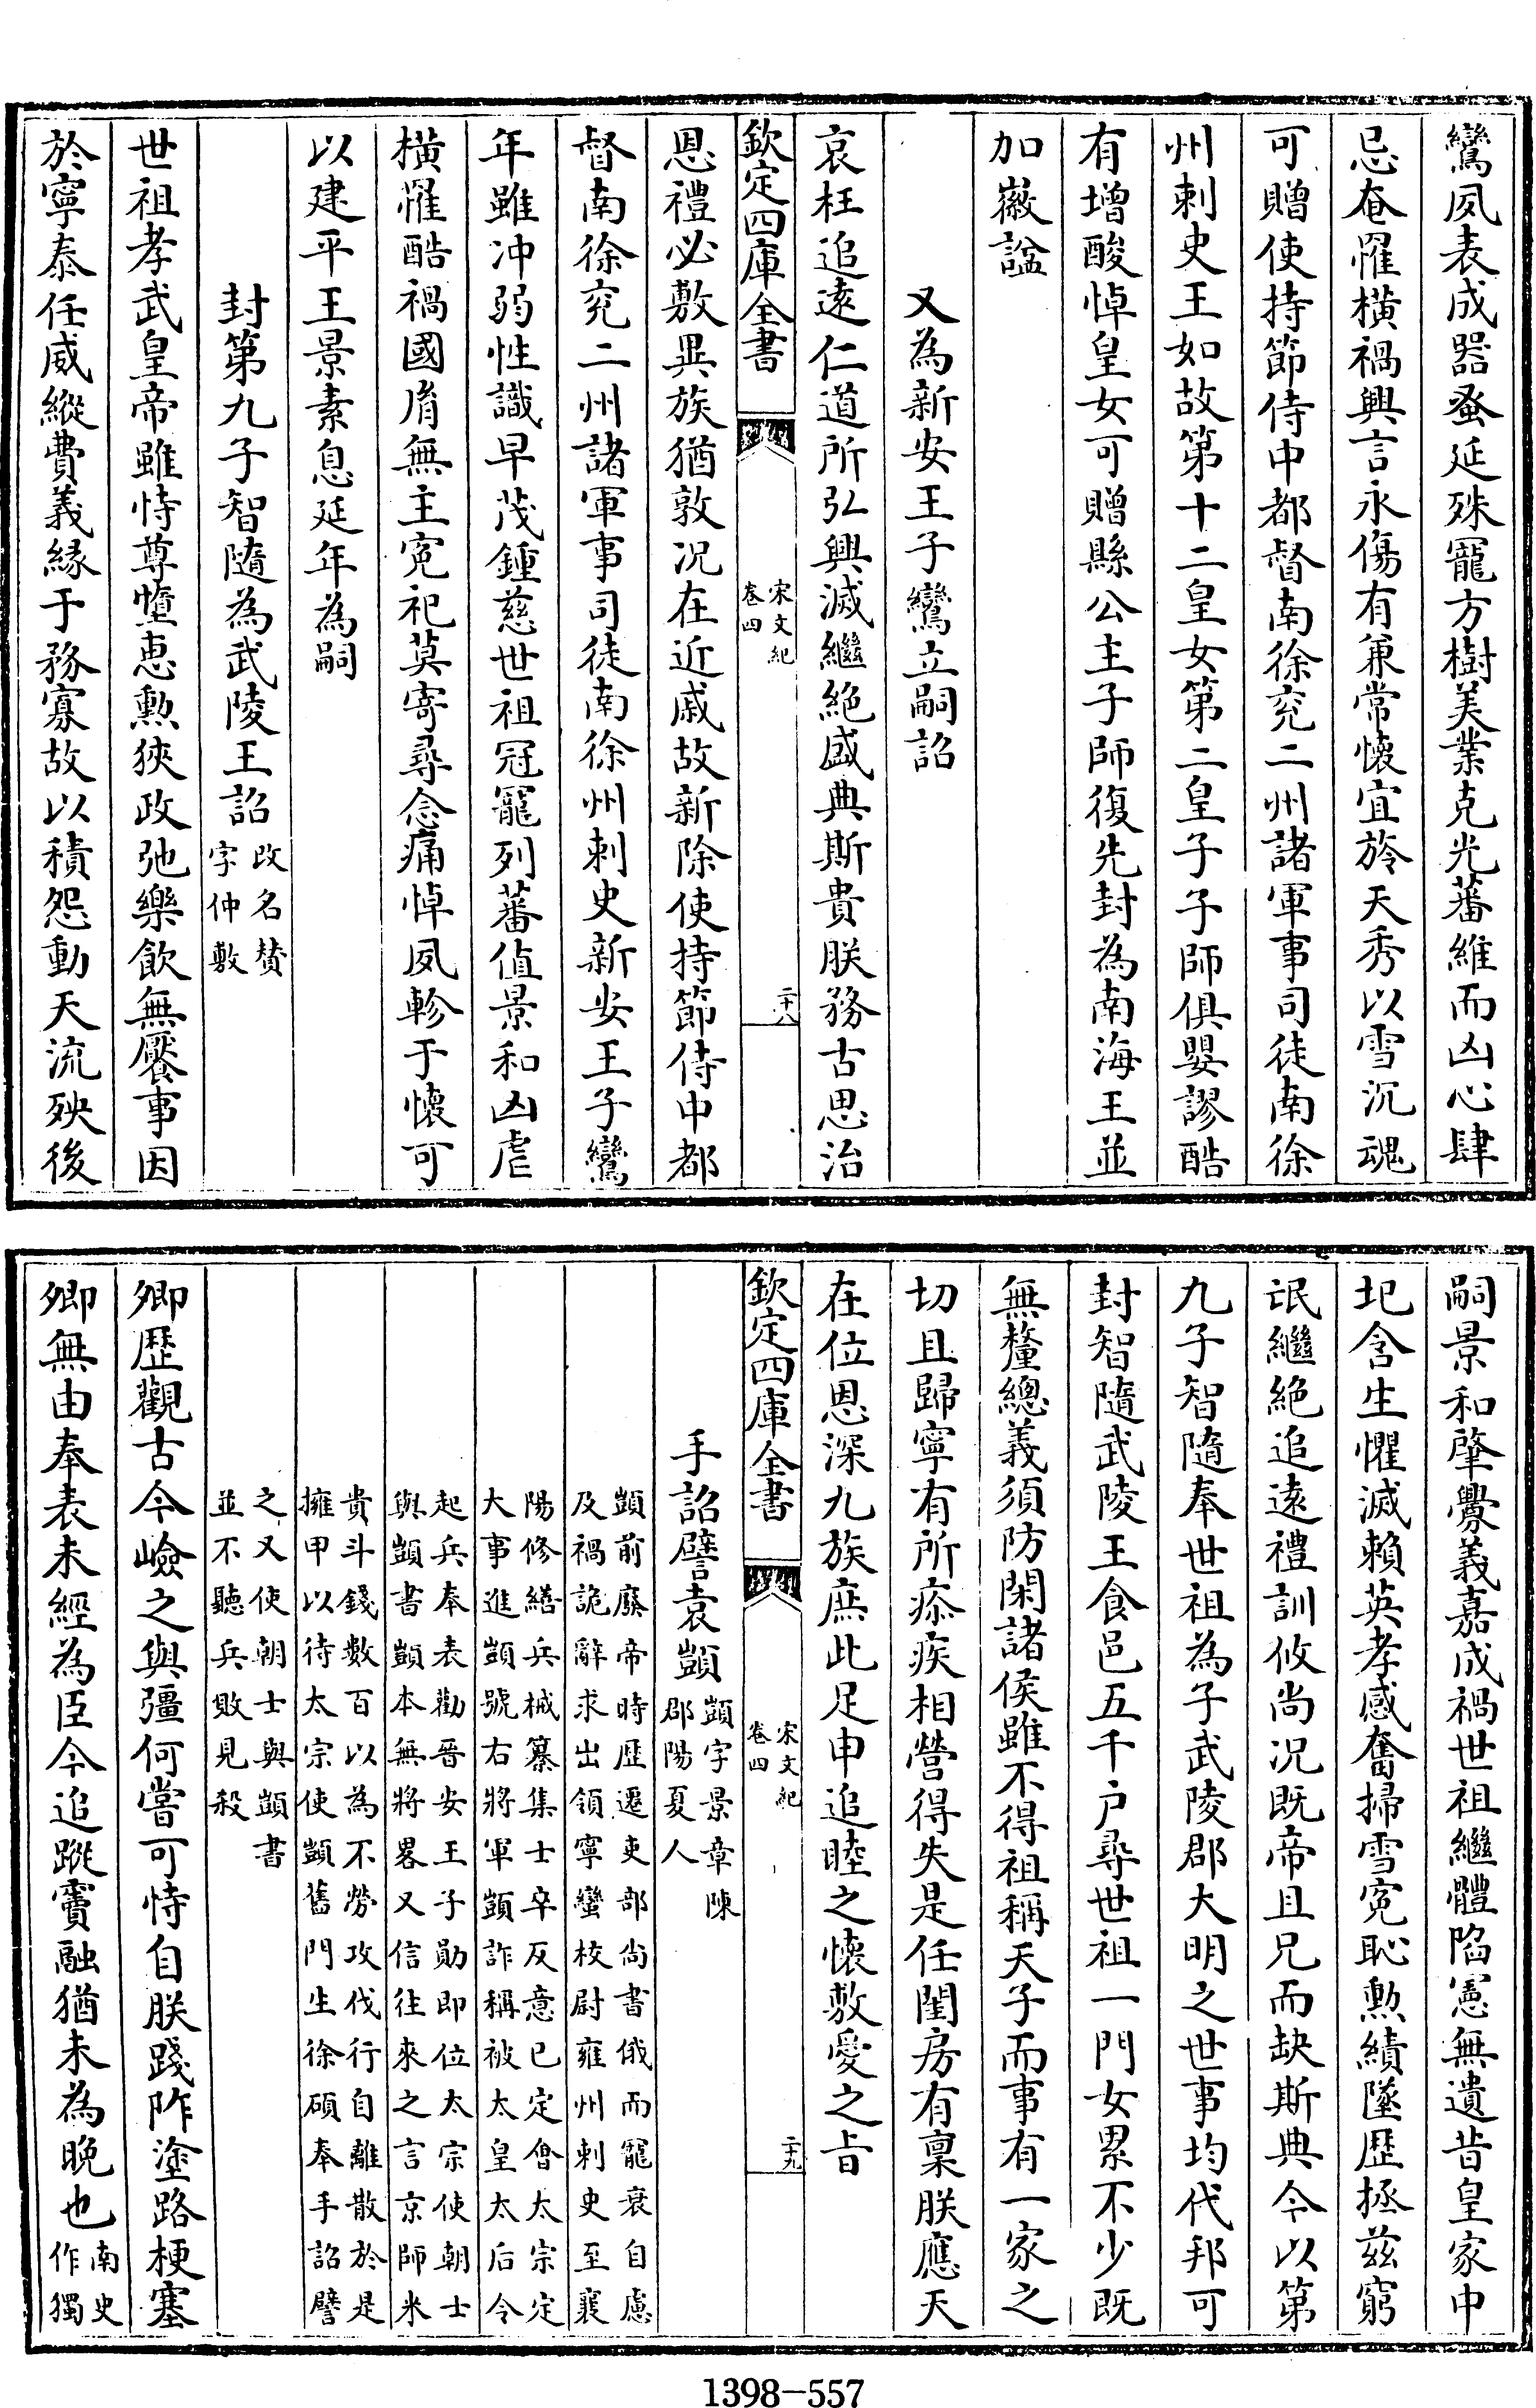 鸞夙表成器蚤延殊寵方樹美業克光蕃維而凶心肆
忌奄罹横禍興言永傷有兼常懷宜旍天秀以雪沉魂
可贈使持節侍中都督南徐兖二州諸軍事司徒南徐
州刺史王如故第十二皇女第二皇子子師俱嬰謬酷
有增酸悼皇女可贈縣公主子師復先封為南海王並
加徽諡
又為新安王子鸞立嗣詔
哀枉追逺仁道所弘興滅繼絶盛典斯貴朕務古思治
欽定四庫全書
宋文紀
卷四
二十八
恩禮必敷異族猶敦况在近戚故新除使持節侍中都
督南徐兖二州諸軍事司徒南徐州刺史新安王子鸞
年雖冲弱性識早茂鍾慈世祖冠寵列蕃值景和凶虐
横罹酷禍國胤無主寃祀莫寄尋念痛悼夙軫于懷可
以建平王景素息延年為嗣
封第九子智隨為武陵王詔改名賛
字仲敷
世祖孝武皇帝雖恃尊墮恵勲狹政弛樂飲無饜事因
於寧泰任威縱費義縁于務寡故以積怨動天流殃後
嗣景和肇舋義嘉成禍世祖繼體陷憲無遺昔皇家中
圮含生懼滅賴英孝感奮掃雪寃恥勲績墜歴拯兹窮
氓繼絶追逺禮訓攸尚况既帝且兄而缺斯典今以第
九子智隨奉世祖為子武陵郡大明之世事均代邦可
封智隨武陵王食邑五千户尋世祖一門女累不少既
無釐總義須防閑諸侯雖不得祖稱天子而事有一家之
切且歸寧有所疹疾相營得失是任閨房有稟朕應天
在位恩深九族庶此足申追睦之懷敷愛之旨
欽定四庫全書
宋文紀
卷四
二十九
手詔譬袁顗顗字景章陳
郡陽夏人
顗前廢帝時歴遷吏部尚書俄而寵衰自慮
及禍詭辭求出領寧蠻校尉雍州刺史至襄
陽修繕兵械纂集士卒反意已定會太宗定
大事進顗號右將軍顗詐稱被太皇太后令
起兵奉表勸晉安王子勛即位太宗使朝士
與顗書顗本無將畧又信往來之言京師米
貴斗錢數百以為不勞攻伐行自離散於是
擁甲以待太宗使顗舊門生徐碩奉手詔譬
之又使朝士與顗書
並不聽兵敗見殺
卿歴觀古今嶮之與彊何嘗可恃自朕踐阼塗路梗塞
卿無由奉表未經為臣今追蹤竇融猶未為晩也南史
作獨
1398-557